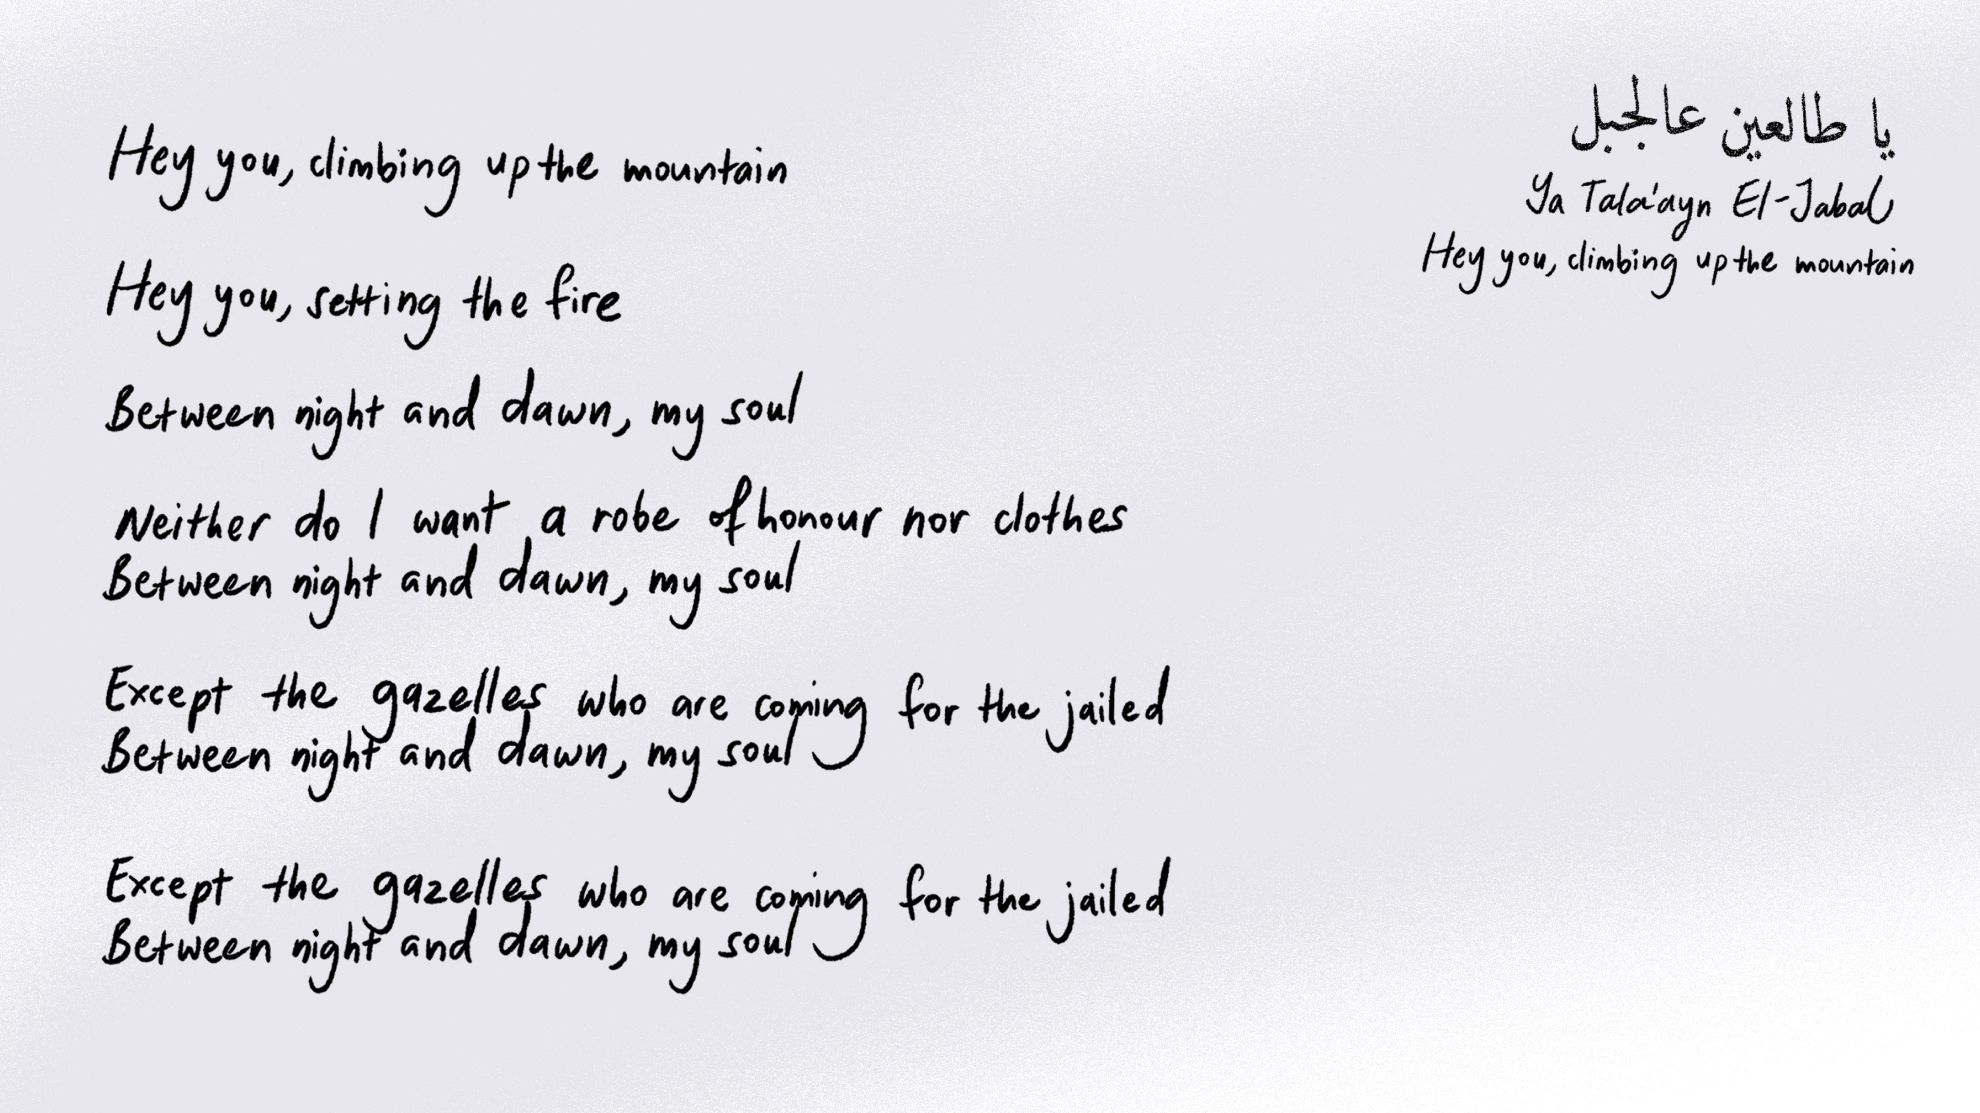 Hey you, climbing up the mountain
Hey you, setting the fire
Between night and dawn, my soul
Neither do I want a robe of honour nor clothes
Between night and dawn, my soul
Except the gazelles who are coming for the jailed
Between night and dawn, my soul
Except the gazelles who are coming for the jailed
Between night and dawn, my soul
يا طالعين عالجبل
Ya Tala'ayn El-Jabal
Hey you, climbing up the mountain